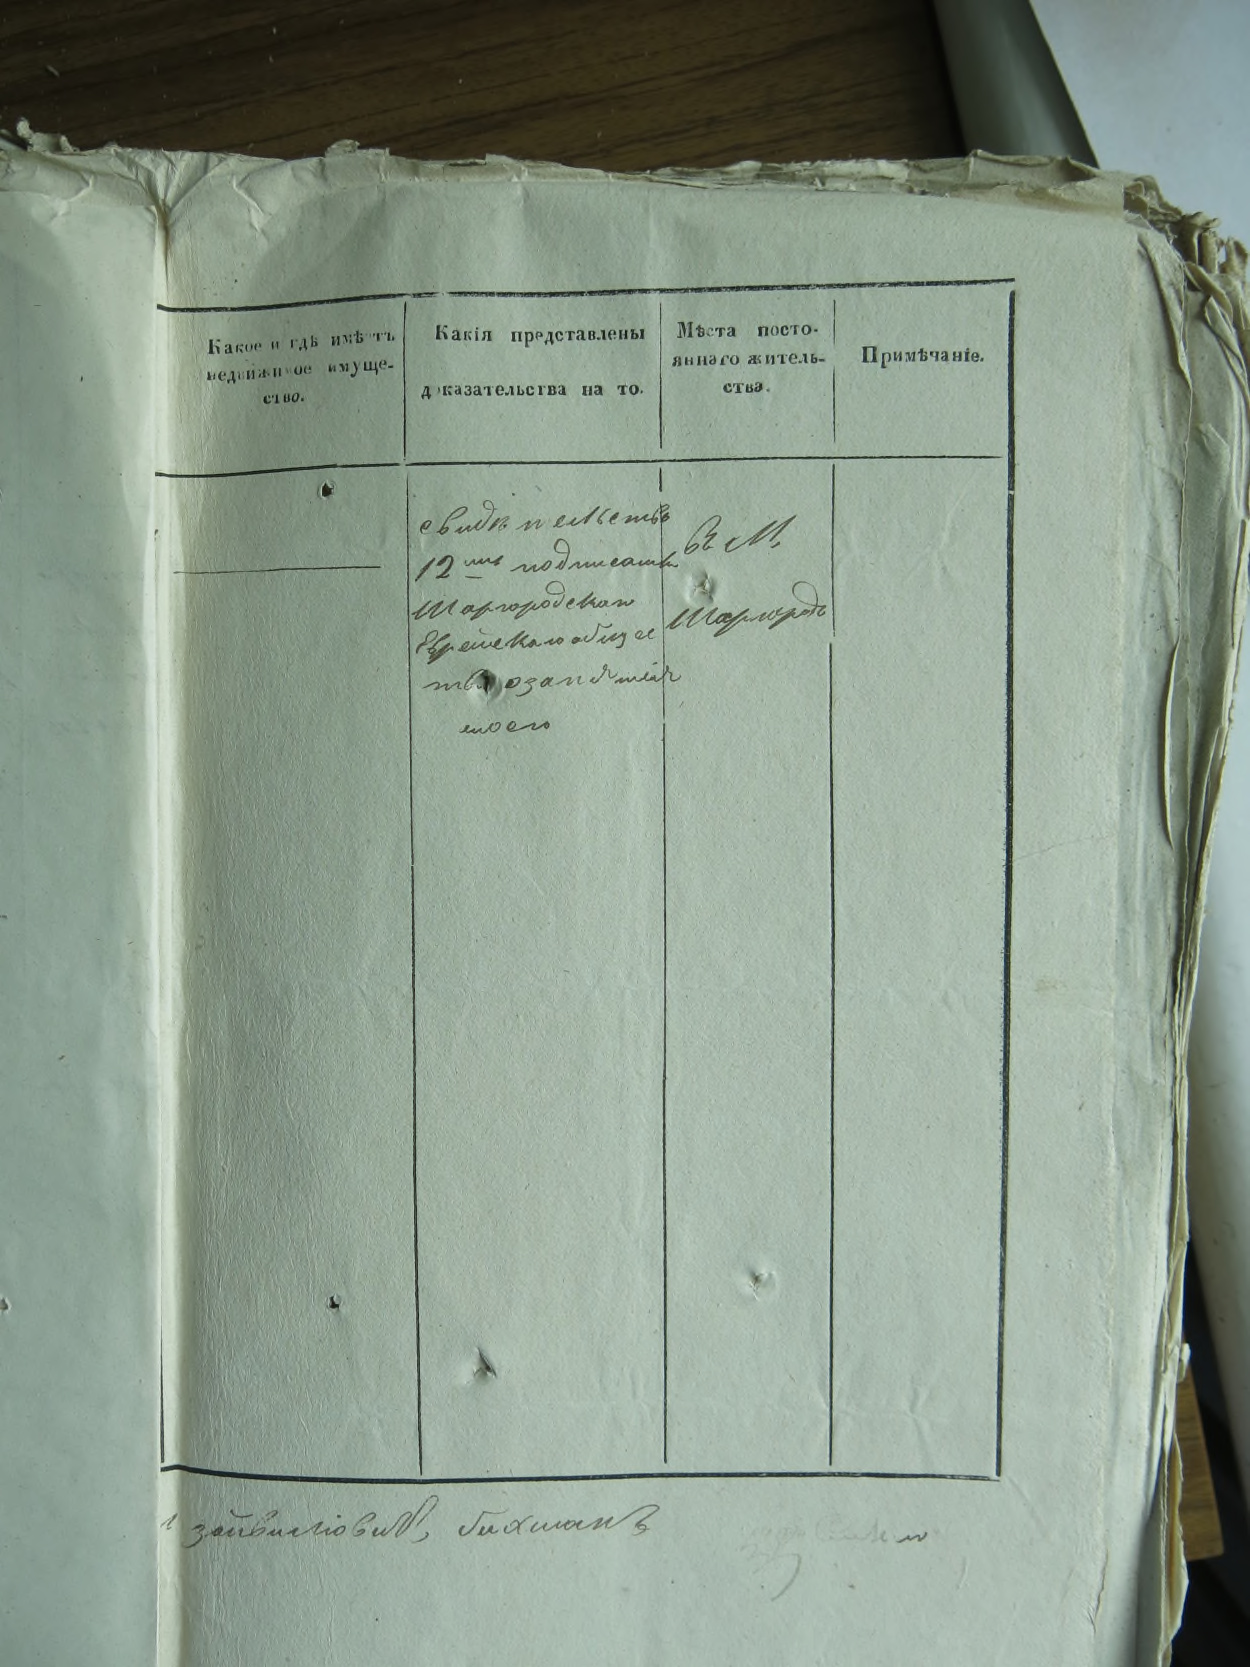 Какое и гдѣ имѣетъ
недвижимое имуще-
ство.
Какія представлены
доказательства на то.
Мѣста посто-
яннаго житель-
ства.
Примѣчаніе.
свидѣтельство
12ть подписами
Шаргородскаго
Еврейскаго общес
тва о занятіи
моего
въ М.
Шаргородѣ